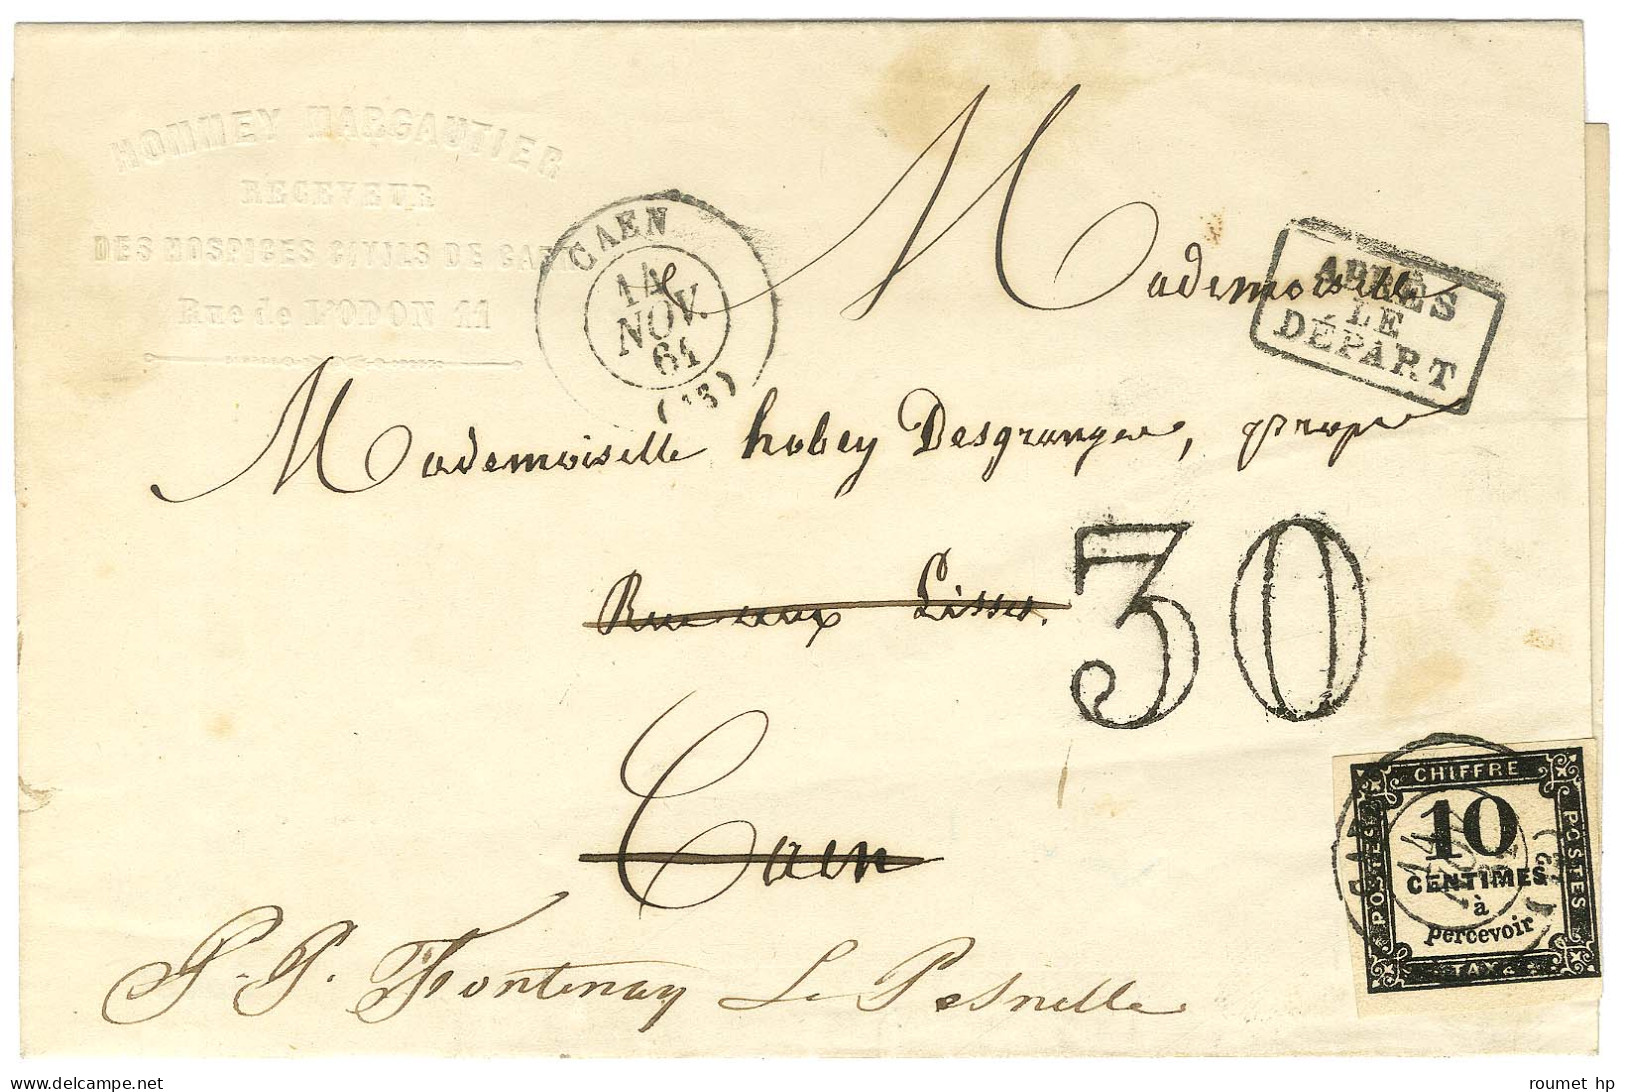 HOMMEY MARGAUTIER
RECEVEUR
DES HOSPICES CIVILS DE CAEN
Rue de L'ODON 11
CAEN
14
NOV.
61
(13)
Mademoiselle
APRÈS
LE
DÉPART
Mademoiselle hobey Desgranges, propre
Rue aux Lisses.
30
Caen
P. P. Fontenay Le Pesnelle
CHIFFRE
POSTES
10
CENTIMES
à
percevoir
POSTES
TAXE
roumet hp